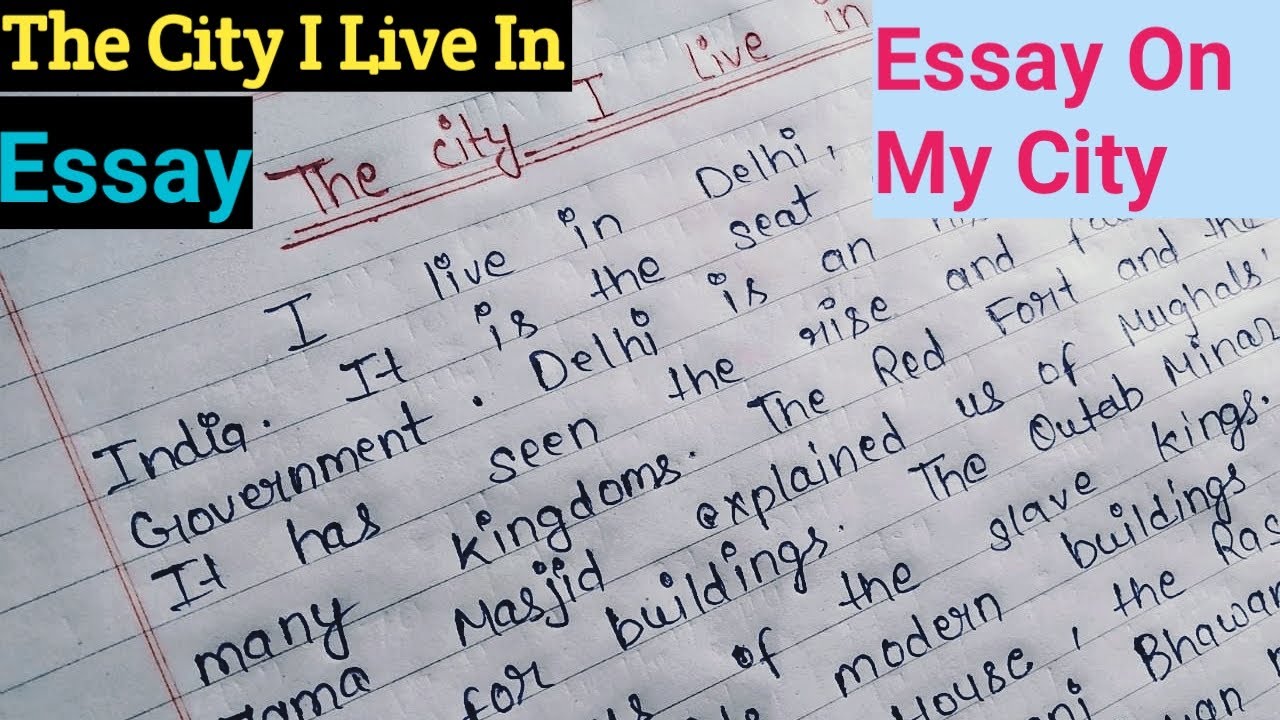 The City I Live In
Essay
Essay On
My City
The city I live in
I live in Delhi,
India. It is the seat
Government. Delhi is an
It has seen the rise and
many kingdoms. The Red Fort and the
Jama Masjid explained us of Mughals'
for buildings. The Qutab Minar
of the slave kings.
modern buildings
House, the
Bhawan